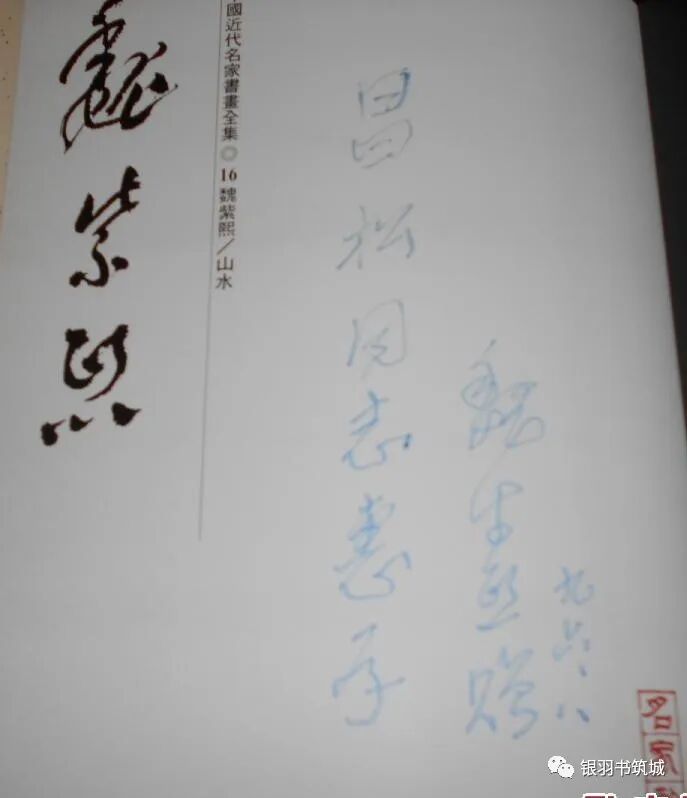 魏紫熙
國近代名家書畫全集◎16魏紫熙／山水
昌松同志惠存
魏紫熙赠
九六、八
名家
银羽书筑城